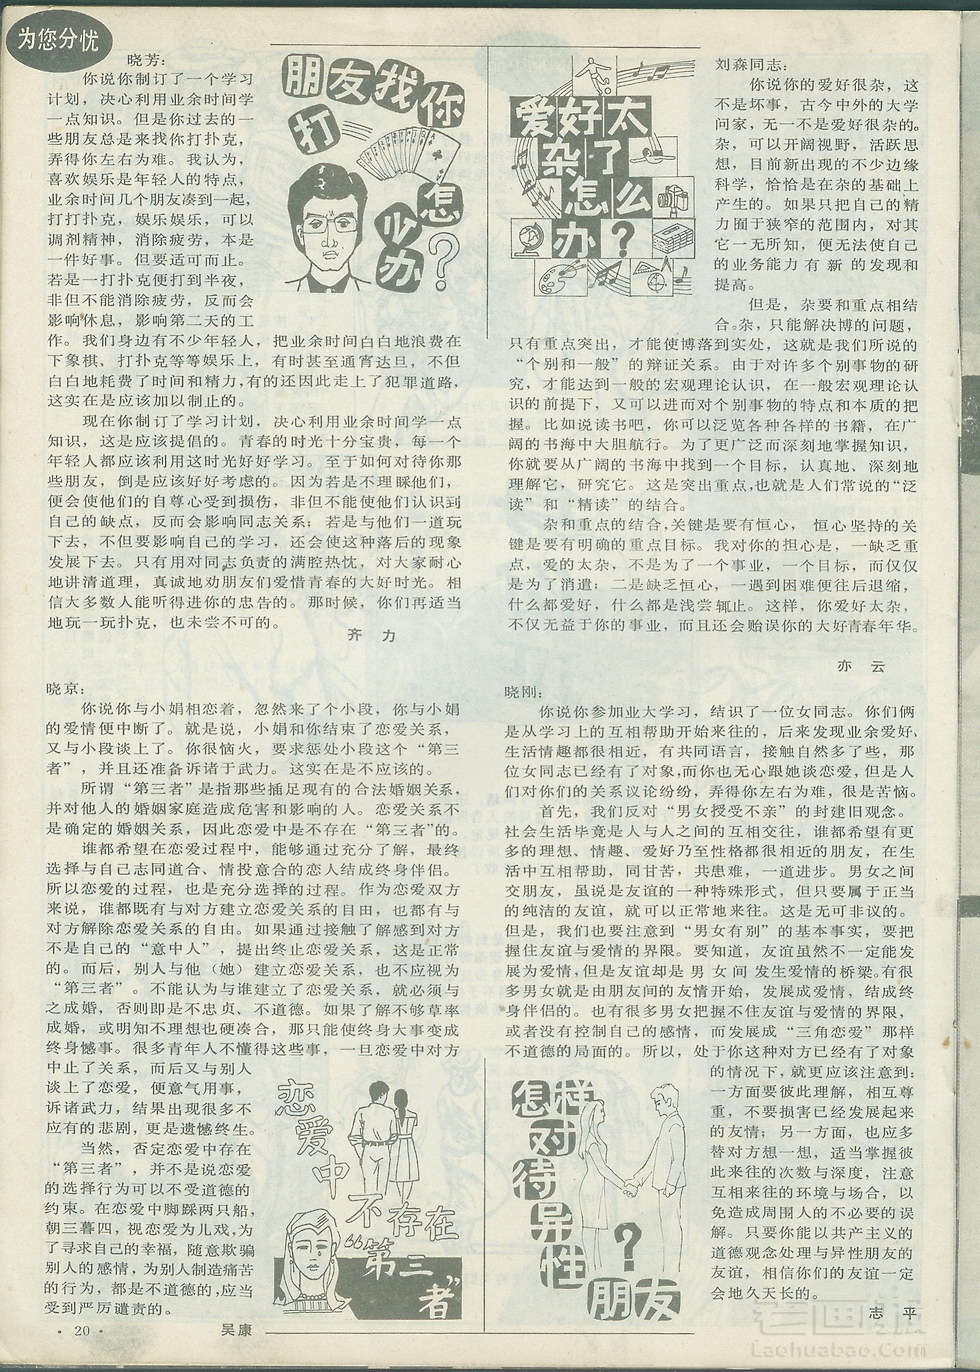 为您分忧
朋友找你
打
扑克
怎
么
办?
晓芳:
你说你制订了一个学习
计划，决心利用业余时间学
一点知识。但是你过去的一
些朋友总是来找你打扑克，
弄得你左右为难。我认为，
喜欢娱乐是年轻人的特点，
业余时间几个朋友凑到一起，
打打扑克，娱乐娱乐，可以
调剂精神，消除疲劳，本是
一件好事。但要适可而止。
若是一打扑克便打到半夜，
非但不能消除疲劳，反而会
影响休息，影响第二天的工
作。我们身边有不少年轻人，把业余时间白白地浪费在
下象棋、打扑克等等娱乐上，有时甚至通宵达旦，不但
白白地耗费了时间和精力，有的还因此走上了犯罪道路，
这实在是应该加以制止的。
现在你制订了学习计划，决心利用业余时间学一点
知识，这是应该提倡的。青春的时光十分宝贵，每一个
年轻人都应该利用这时光好好学习。至于如何对待你那
些朋友，倒是应该好好考虑的。因为若是不理睬他们，
便会使他们的自尊心受到损伤，非但不能使他们认识到
自己的缺点，反而会影响同志关系；若是与他们一道玩
下去，不但要影响自己的学习，还会使这种落后的现象
发展下去。只有用对同志负责的满腔热忱，对大家耐心
地讲清道理，真诚地劝朋友们爱惜青春的大好时光。相
信大多数人能听得进你的忠告的。那时候，你们再适当
地玩一玩扑克，也未尝不可的。
齐 力
爱好太
杂了
怎么
办?
刘森同志:
你说你的爱好很杂，这
不是坏事，古今中外的大学
问家，无一不是爱好很杂的。
杂，可以开阔视野，活跃思
想，目前新出现的不少边缘
科学，恰恰是在杂的基础上
产生的。如果只把自己的精
力囿于狭窄的范围内，对其
它一无所知，便无法使自己
的业务能力有新的发现和
提高。
但是，杂要和重点相结
合。杂，只能解决博的问题，
只有重点突出，才能使博落到实处，这就是我们所说的
“个别和一般”的辩证关系。由于对许多个别事物的研
究，才能达到一般的宏观理论认识，在一般宏观理论认
识的前提下，又可以进而对个别事物的特点和本质的把
握。比如说读书吧，你可以泛览各种各样的书籍，在广
阔的书海中大胆航行。为了更广泛而深刻地掌握知识，
你就要从广阔的书海中找到一个目标，认真地、深刻地
理解它，研究它。这是突出重点，也就是人们常说的“泛
读”和“精读”的结合。
杂和重点的结合，关键是要有恒心，恒心坚持的关
键是要有明确的重点目标。我对你的担心是，一缺乏重
点，爱的太杂，不是为了一个事业，一个目标，而仅仅
是为了消遣；二是缺乏恒心，一遇到困难便往后退缩，
什么都爱好，什么都是浅尝辄止。这样，你爱好太杂，
不仅无益于你的事业，而且还会贻误你的大好青春年华。
亦 云
晓京:
你说你与小娟相恋着，忽然来了个小段，你与小娟
的爱情便中断了。就是说，小娟和你结束了恋爱关系，
又与小段谈上了。你很恼火，要求惩处小段这个“第三
者”，并且还准备诉诸于武力。这实在是不应该的。
所谓“第三者”是指那些插足现有的合法婚姻关系，
并对他人的婚姻家庭造成危害和影响的人。恋爱关系不
是确定的婚姻关系，因此恋爱中是不存在“第三者”的。
谁都希望在恋爱过程中，能够通过充分了解，最终
选择与自己志同道合、情投意合的恋人结成终身伴侣。
所以恋爱的过程，也是充分选择的过程。作为恋爱双方
来说，谁都既有与对方建立恋爱关系的自由，也都有与
对方解除恋爱关系的自由。如果通过接触了解感到对方
不是自己的“意中人”，提出终止恋爱关系，这是正常
的。而后，别人与他（她）建立恋爱关系，也不应视为
“第三者”。不能认为与谁建立了恋爱关系，就必须与
之成婚，否则即是不忠贞、不道德。如果了解不够草率
成婚，或明知不理想也硬凑合，那只能使终身大事变成
终身憾事。很多青年人不懂得这些事，一旦恋爱中对方
中止了关系，而后又与别人
谈上了恋爱，便意气用事，
诉诸武力，结果出现很多不
应有的悲剧，更是遗憾终生。
当然，否定恋爱中存在
“第三者”，并不是说恋爱
的选择行为可以不受道德的
约束。在恋爱中脚踩两只船，
朝三暮四，视恋爱为儿戏，为
了寻求自己的幸福，随意欺骗
别人的感情，为别人制造痛苦
的行为，都是不道德的，应当
受到严厉谴责的。
吴康
恋
爱
中
不存在
“第三
者”
晓刚:
你说你参加业大学习，结识了一位女同志。你们俩
是从学习上的互相帮助开始来往的，后来发现业余爱好、
生活情趣都很相近，有共同语言，接触自然多了些，那
位女同志已经有了对象，而你也无心跟她谈恋爱，但是人
们对你们的关系议论纷纷，弄得你左右为难，很是苦恼。
首先，我们反对“男女授受不亲”的封建旧观念。
社会生活毕竟是人与人之间的互相交往，谁都希望有更
多的理想、情趣、爱好乃至性格都很相近的朋友，在生
活中互相帮助，同甘苦，共患难，一道进步。男女之间
交朋友，虽说是友谊的一种特殊形式，但只要属于正当
的纯洁的友谊，就可以正常地来往。这是无可非议的。
但是，我们也要注意到“男女有别”的基本事实，要把
握住友谊与爱情的界限。要知道，友谊虽然不一定能发
展为爱情，但是友谊却是男女间发生爱情的桥梁。有很
多男女就是由朋友间的友情开始，发展成爱情，结成终
身伴侣的。也有很多男女把握不住友谊与爱情的界限，
或者没有控制自己的感情，而发展成“三角恋爱”那样
不道德的局面的。所以，处于你这种对方已经有了对象
的情况下，就更应该注意到：
一方面要彼此理解，相互尊
重，不要损害已经发展起来
的友情；另一方面，也应多
替对方想一想，适当掌握彼
此来往的次数与深度，注意
互相来往的环境与场合，以
免造成周围人的不必要的误
解。只要你能以共产主义的
道德观念处理与异性朋友的
友谊，相信你们的友谊一定
会地久天长的。
志 平
怎样
对
待
异
性
朋友
?
· 20 ·
老画报
Laohuabao.Com